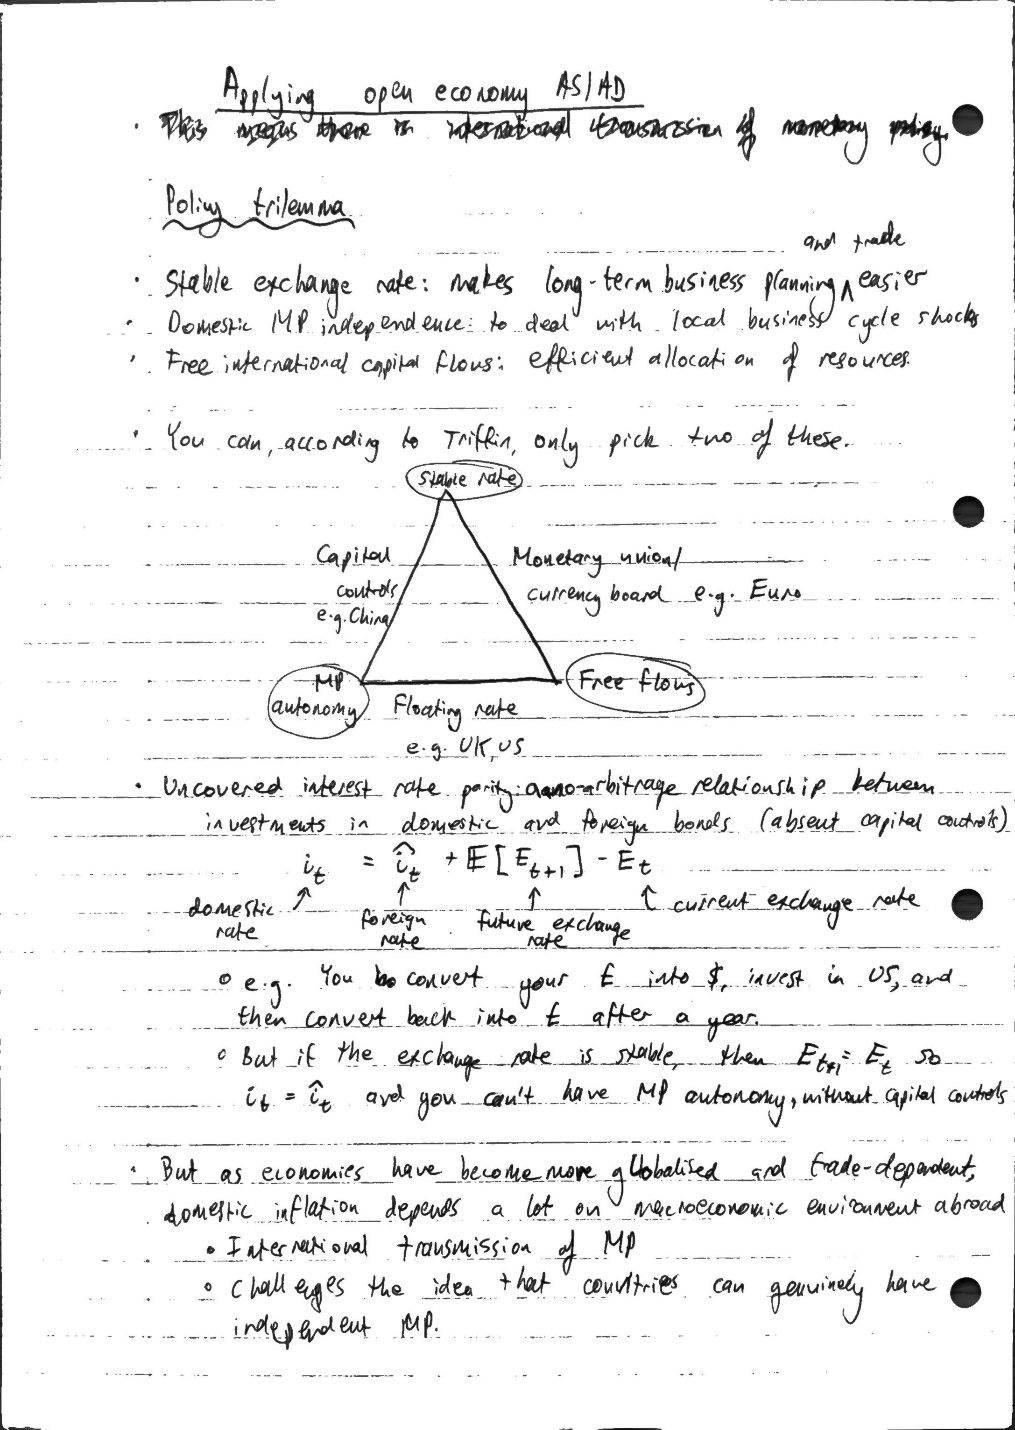 Applying open economy AS/AD
• This means there is international transmission of monetary policy.
Policy trilemma
and trade
• Stable exchange rate: makes long-term business planning ∧ easier
• Domestic MP independence: to deal with local business cycle shocks
• Free international capital flows: efficient allocation of resources.
• You can, according to Triffin, only pick two of these.
Stable rate
Capital
controls
e.g. China
Monetary union/
currency board e.g. Euro
MP
autonomy
Free flows
Floating rate
e.g. UK, US
• Uncovered interest rate parity: a no-arbitrage relationship between
investments in domestic and foreign bonds (absent capital controls)
i_t = î_t + 𝔼[E_{t+1}] - E_t
domestic
rate
foreign
rate
future exchange
rate
current exchange rate
o e.g. You convert your £ into $, invest in US, and
then convert back into £ after a year.
o But if the exchange rate is stable, then E_{t+1} = E_t so
i_t = î_t and you can't have MP autonomy, without capital controls
• But as economies have become more globalised and trade-dependent,
domestic inflation depends a lot on macroeconomic environment abroad
o International transmission of MP
o Challenges the idea that countries can genuinely have
independent MP.